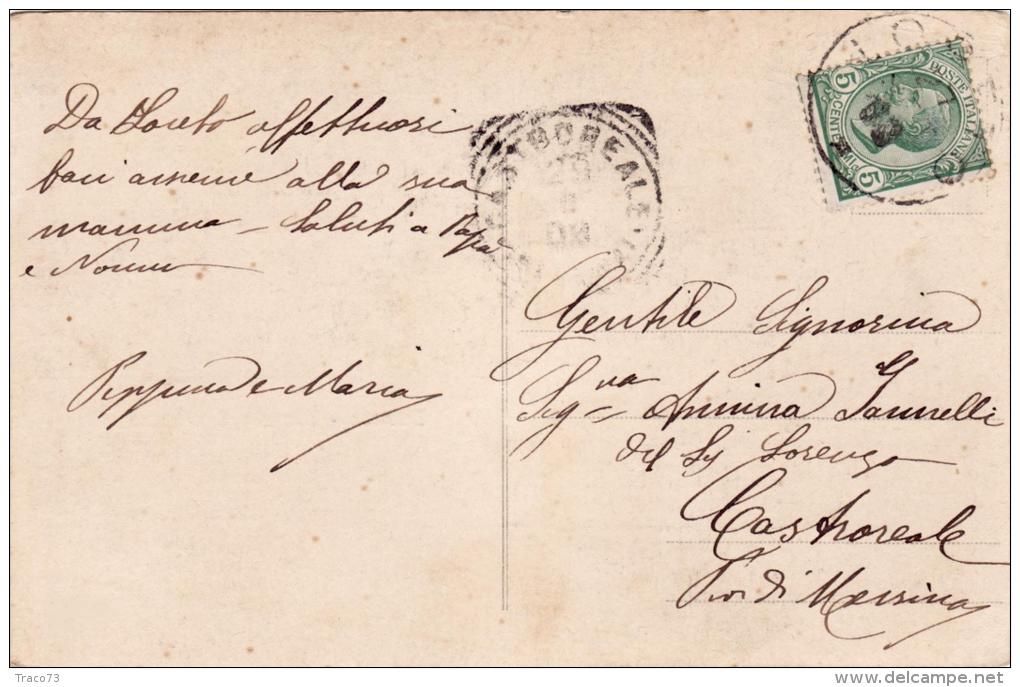 Da Loreto affettuosi
baci assieme alla sua
mamma - Saluti a Papà
e Nonna
Peppina e Maria
CASTROREALE
29
08
POSTE ITALIANE
5 CENTESIMI 5
Gentile Signorina
Sigva Annina Iannelli
del Sg Lorenzo
Castroreale
Prov di Messina
Traco73
delcampe.net